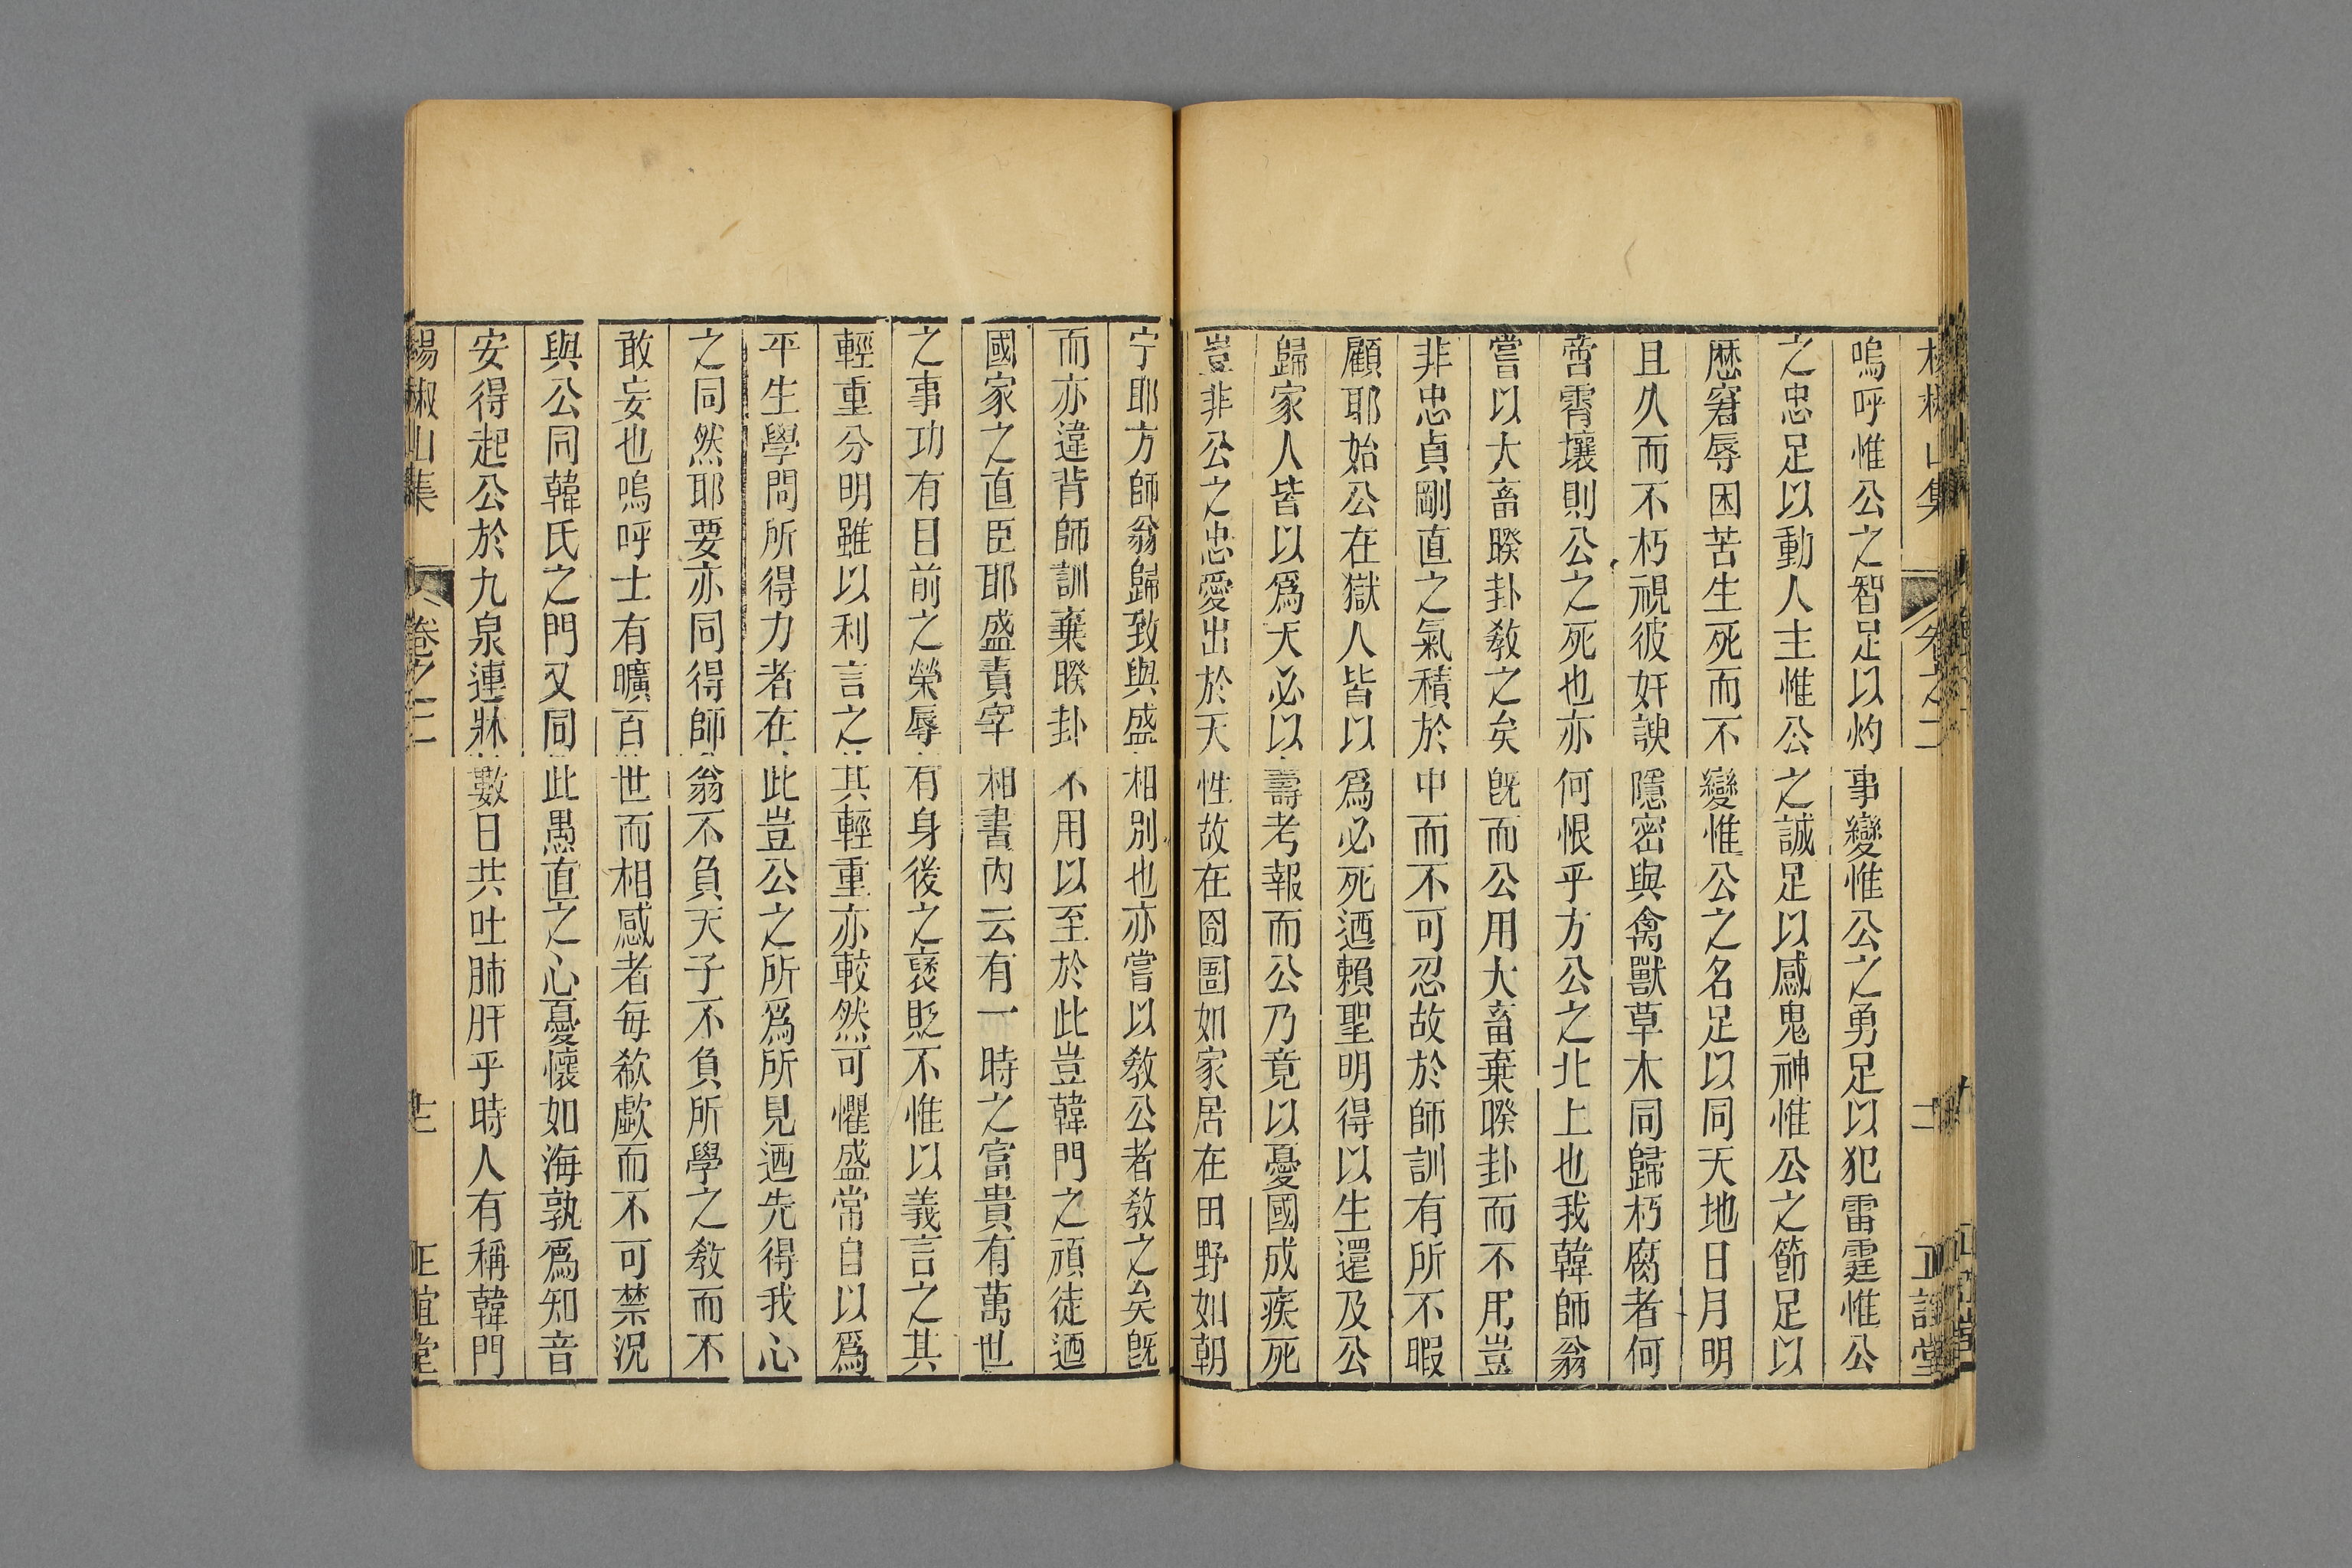 嗚呼惟公之智足以灼事變惟公之勇足以犯雷霆惟公
之忠足以動人主惟公之誠足以感鬼神惟公之節足以
歷窘辱困苦生死而不變惟公之名足以同天地日月明
且久而不朽視彼奸諛隱密與禽獸草木同歸朽腐者何
啻霄壤則公之死也亦何恨乎方公之北上也我韓師翁
嘗以大畜睽卦教之矣旣而公用大畜棄睽卦而不用豈
非忠貞剛直之氣積於中而不可忍故於師訓有所不暇
顧耶始公在獄人皆以爲必死迺賴聖明得以生還及公
歸家人皆以爲天必以壽考報而公乃竟以憂國成疾死
豈非公之忠愛出於天性故在囹圄如家居在田野如朝
宁耶方師翁歸致與盛相別也亦嘗以教公者教之矣旣
而亦違背師訓棄睽卦不用以至於此豈韓門之頑徒迺
國家之直臣耶盛責宰相書內云有一時之富貴有萬世
之事功有目前之榮辱有身後之褒貶不惟以義言之其
輕重分明雖以利言之其輕重亦較然可懼盛常自以爲
平生學問所得力者在此豈公之所爲所見迺先得我心
之同然耶要亦同得師翁不負天子不負所學之教而不
敢妄也嗚呼士有曠百世而相感者每欷歔而不可禁況
與公同韓氏之門又同此愚直之心憂懷如海孰爲知音
安得起公於九泉連牀數日共吐肺肝乎時人有稱韓門
楊椒山集 卷之二 正誼堂